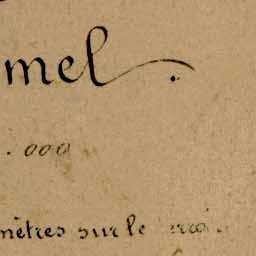 mel.
.000
mètres sur le